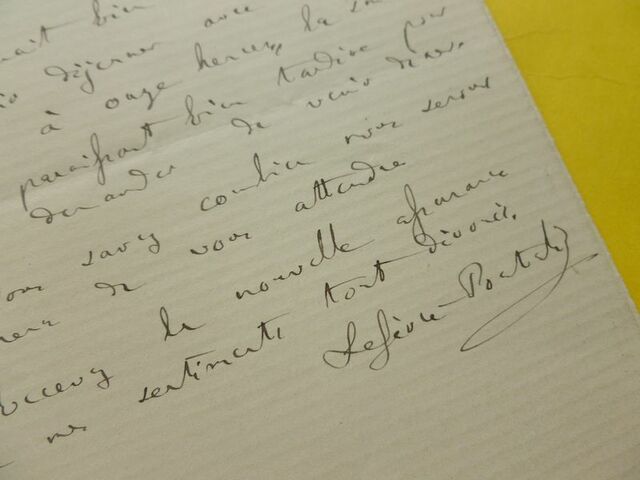 bien
déjeuner avec
à onze heures, la
paraissant bien tardive pour
demander de venir dîner.
vous savez combien nous serons
heureux de vous attendre
Recevez la nouvelle assurance
de mes sentiments tout dévoués.
Lefèvre-Pontalis